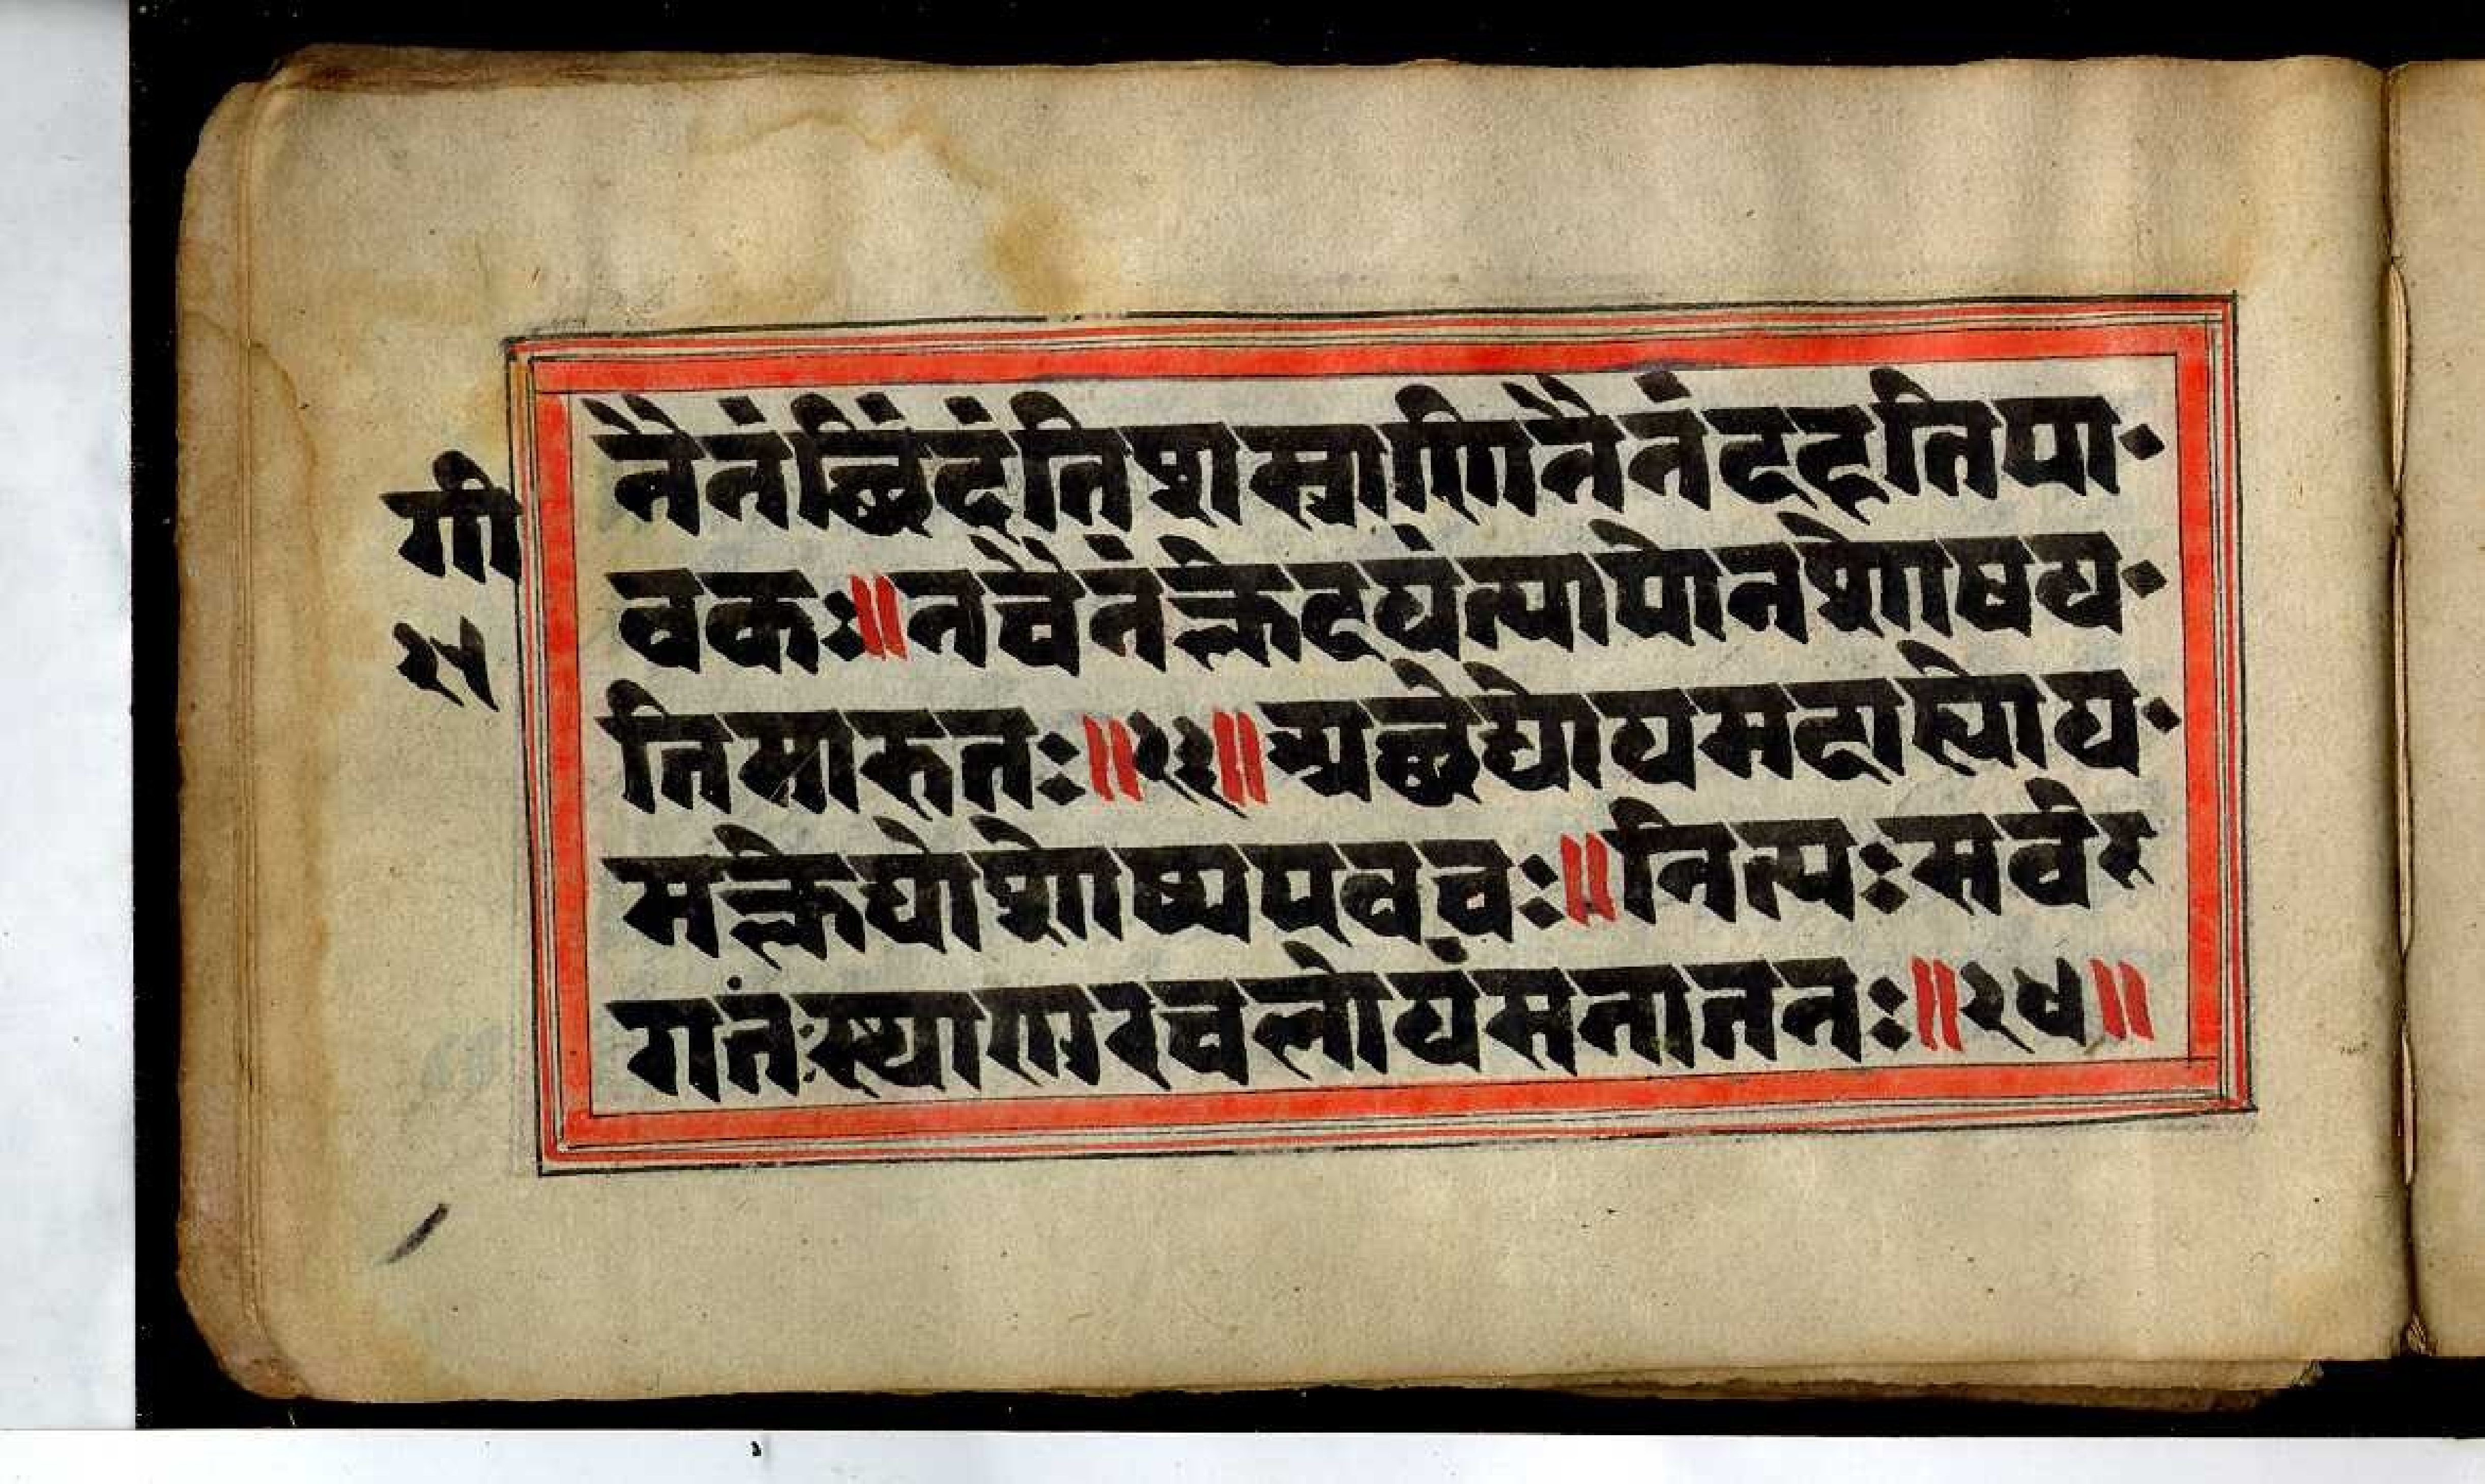 गी
२५
नैनंछिंदंतिशस्त्राणिनैनंदहतिपा
वकः॥नचैनंक्लेदयंत्यापोनशोषय
तिमारुतः॥२३॥अछेद्योयमदाह्योय
मक्लेद्योशोष्यएवचः॥नित्यःसर्वर
गतःस्थाणुरचलोयंसनातनः॥२४॥